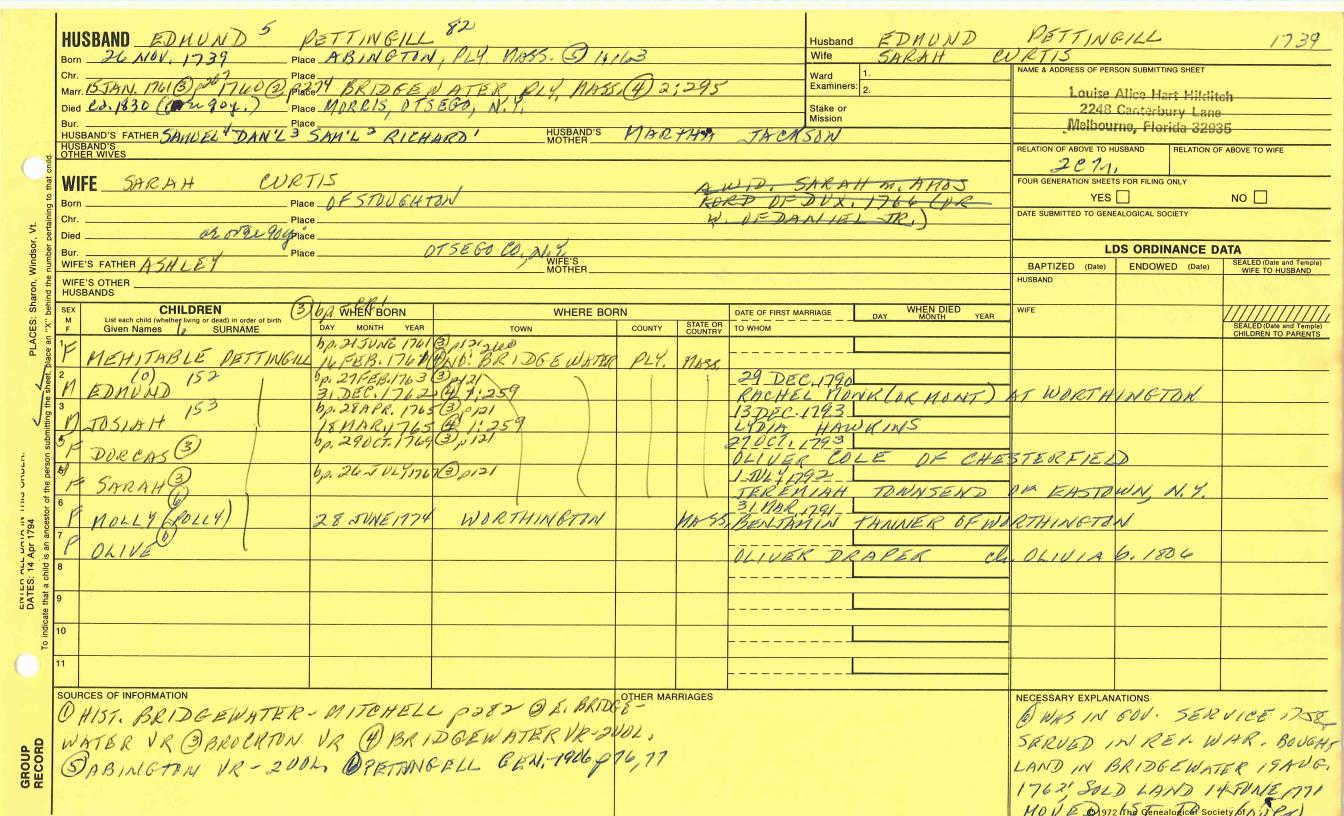 HUSBAND EDMUND 5 PETTINGILL 82
Born 26 NOV. 1739 Place ABINGTON, PLY. MASS. (5) 1:163
Chr. Place
Marr. 15 JAN. 1761 (3) p267 1760 (2) p274 Place BRIDGEWATER PLY, MASS. (4) 2:295
Died ca. 1830 (or over 90 y.) Place MORRIS, OTSEGO, N.Y.
Bur. Place
HUSBAND'S FATHER SAMUEL 4 DAN'L 3 SAM'L 2 RICHARD 1 HUSBAND'S MOTHER MARTHA JACKSON
HUSBAND'S OTHER WIVES
Husband EDMUND PETTINGILL 1739
Wife SARAH CURTIS
Ward Examiners: 1.
2.
Stake or Mission
NAME & ADDRESS OF PERSON SUBMITTING SHEET
Louise Alice Hart Hilditch
2248 Canterbury Lane
Melbourne, Florida 32935
RELATION OF ABOVE TO HUSBAND RELATION OF ABOVE TO WIFE
FOUR GENERATION SHEETS FOR FILING ONLY
YES NO
DATE SUBMITTED TO GENEALOGICAL SOCIETY
WIFE SARAH CURTIS
A WID. SARAH m. AMOS
FORD OF DUX. 1766 (OR
W. OF DANIEL JR.)
Born Place OF STOUGHTON
Chr. Place
Died at over 90 y. Place
Bur. Place OTSEGO CO., N.Y.
WIFE'S FATHER ASHLEY WIFE'S MOTHER
WIFE'S OTHER HUSBANDS
LDS ORDINANCE DATA
BAPTIZED (Date) ENDOWED (Date) SEALED (Date and Temple) WIFE TO HUSBAND
HUSBAND
WIFE
SEALED (Date and Temple) CHILDREN TO PARENTS
SEX M F
CHILDREN
List each child (whether living or dead) in order of birth
Given Names SURNAME
(3) bp.
WHEN BORN
DAY MONTH YEAR
WHERE BORN
TOWN COUNTY STATE OR COUNTRY
DATE OF FIRST MARRIAGE
TO WHOM
WHEN DIED
DAY MONTH YEAR
1 bp. 21 JUNE 1761 (3) p121
F MEHITABLE PETTINGILL 14 FEB. 1761 NO. BRIDGEWATER PLY. MASS.
2 (6) 152 bp. 27 FEB. 1763 (3) p121 29 DEC. 1790
M EDMUND 31 DEC. 1762 (4) 1:259 RACHEL MONK (OR MONT) AT WORTHINGTON
3 153 bp. 28 APR. 1765 (3) p121 13 DEC. 1793
M JOSIAH 18 MAR 1765 (4) 1:259 LYDIA HAWKINS
5 bp. 29 OCT. 1769 (3) p121 27 OCT. 1793
F DORCAS (3) OLIVER COLE OF CHESTERFIELD
bp. 26 JULY 1767 (3) p121 1 JULY 1792
F SARAH (3) JEREMIAH TOWNSEND OF EASTOWN, N.Y.
6 (6) 31 MAR. 1791
F MOLLY (POLLY) 28 JUNE 1774 WORTHINGTON MASS. BENJAMIN TANNER OF WORTHINGTON
7 (6)
F OLIVE OLIVER DRAPER ch. OLIVIA b. 1806
8
9
10
11
SOURCES OF INFORMATION
(1) HIST. BRIDGEWATER - MITCHELL p282 (2) E. BRIDGE-
WATER VR (3) BROCKTON VR (4) BRIDGEWATER VR - 2 VOL.
(5) ABINGTON VR - 2 VOL. (6) PETTINGELL GEN. - 1906 p76, 77
OTHER MARRIAGES
NECESSARY EXPLANATIONS
(6) WAS IN GOV. SERVICE 1758
SERVED IN REV. WAR. BOUGHT
LAND IN BRIDGEWATER 19 AUG.
1762, SOLD LAND 14 JUNE 1771
MOVED 1ST TO
©1972 The Genealogical Society of
PLACES: Sharon, Windsor, Vt.
ENTER ALL DATA IN THIS ORDER:
DATES: 14 Apr 1794
To indicate that a child is an ancestor of the person submitting the sheet, place an "X" behind the number pertaining to that child.
GROUP RECORD